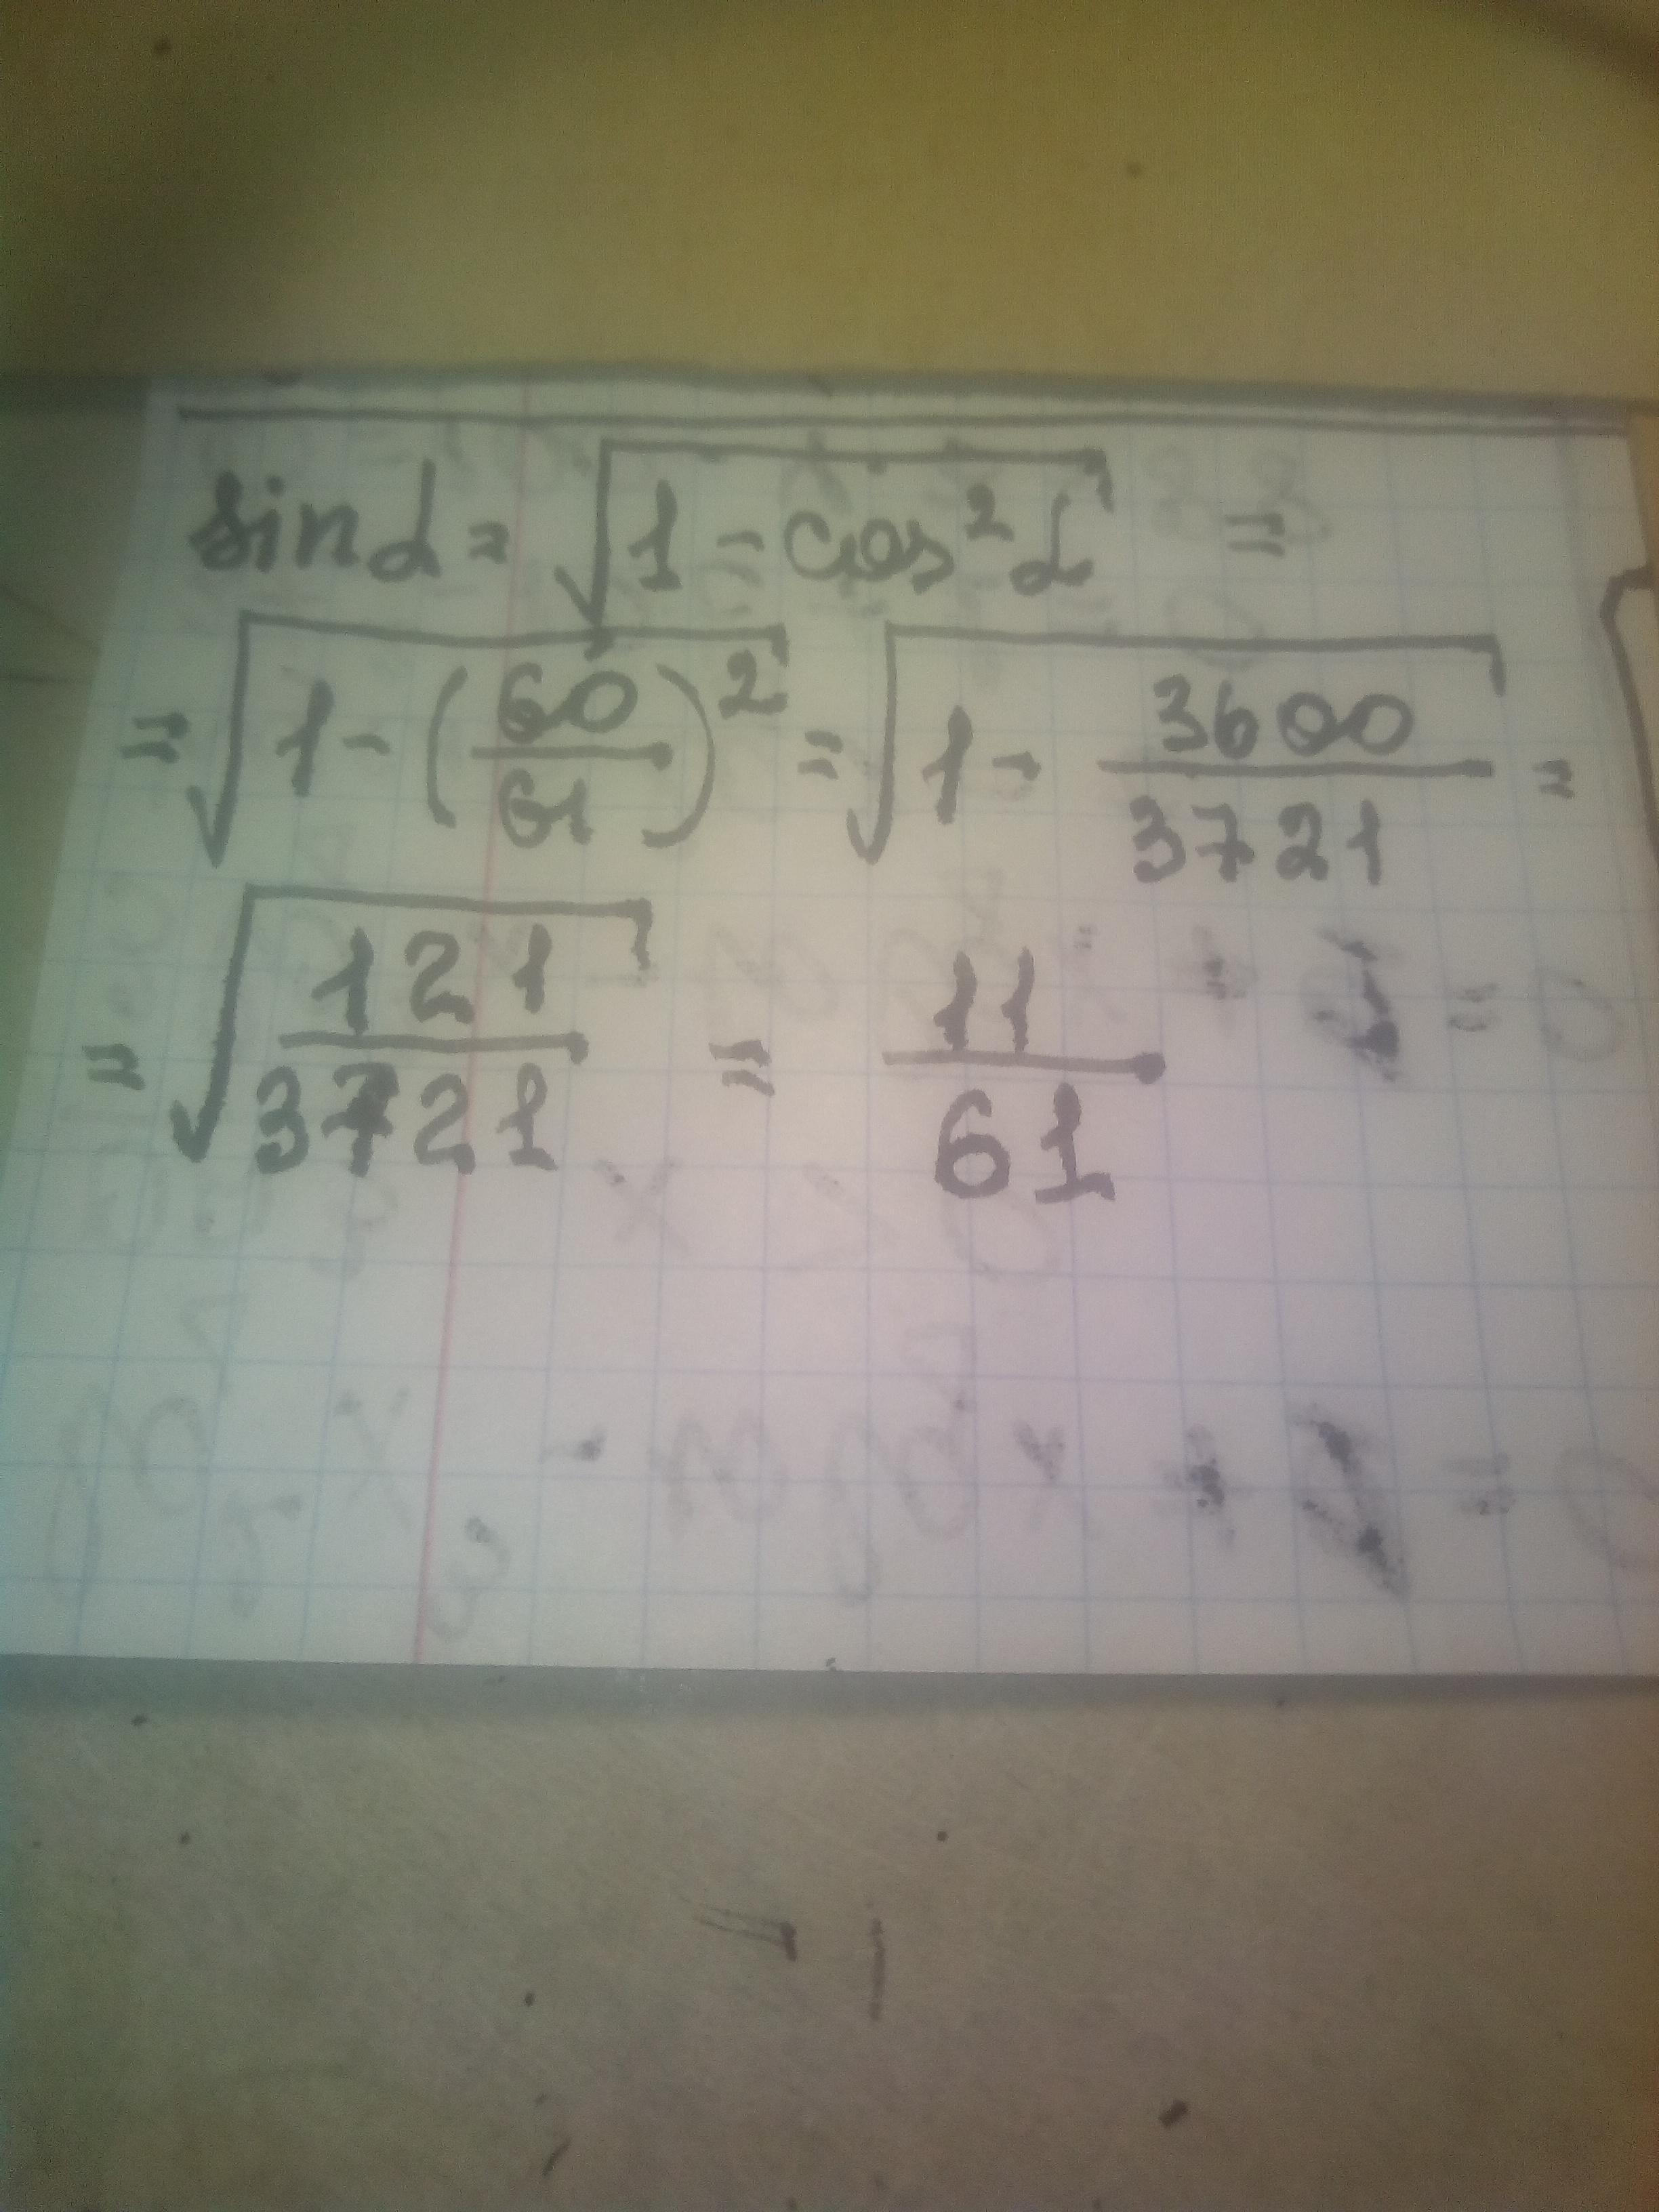 sin α = √(1 - cos² α) =
= √(1 - (60/61)²) = √(1 - 3600/3721) =
= √(121/3721) = 11/61